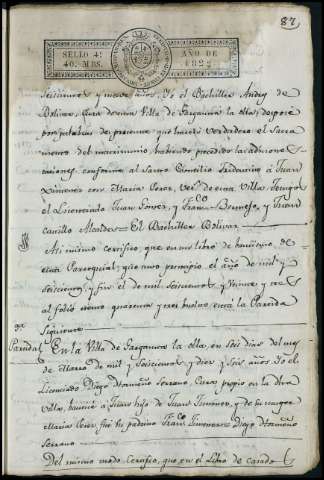 87
SELLO 4º
40. MRS.
AÑO DE
1825
seiscientos y nueve años, Yo el Bachiller Andres de
Bolivar, Cura de esta Villa de Garganta la olla, desposè
por palabras de presente que hacen verdadero el Sacra
mento del matrimonio, habiendo precedido las admones
taciones conforme al Santo Concilio Tridentino à Juan
Ximenez con Maria Perez, vecs. de esta Villa. Testigos
el Licenciado Juan Gomez, y Franco Bermejo, y Juan
Castillo Mendez = El Bachiller Bolivar
Asi mismo certifico, que en un libro de bautismos de
esta Parroquial, que tuvo principio el año de mil y
seiscientos, y fin el de mil, seiscientos, y veinte, y
al folio ciento quarenta y tres buelto està la Partida
siguiente
Partida
En la Villa de Garganta la olla, en seis dias del mes
de Marzo de mil y seiscientos y diez y seis años Yo el
Licenciado Diego Serrano, Cura propio en la dha
Villa, bauticè a Juan hijo de Juan Ximenez, y de su muger
Maria Perez, fue su padrino Franco Ximenez = Diego
Serrano
Del mismo modo certifico, que en el Libro de casado